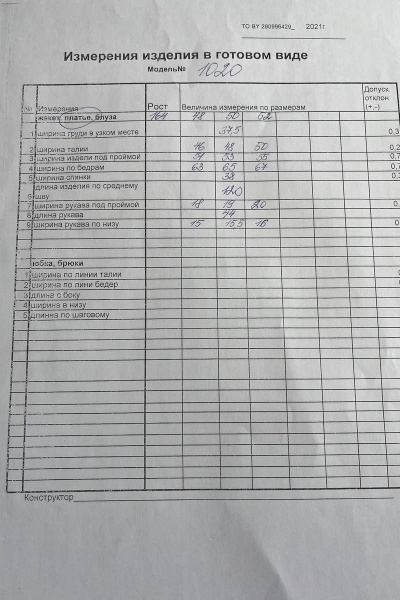 ТО BY 290996429_ 2021г
Измерения изделия в готовом виде
Модель№ 1020
№ Измерения Рост Величина измерения по размерам Допуск. отклон (+,-)
жакет, платье, блуза 164 48 50 52
1 ширина груди в узком месте 37,5 0,3
2 ширина талии 46 48 50 0,
3 ширина издели под проймой 51 53 55 0,
4 ширина по бедрам 63 65 67 0,
5 ширина спинки 38 0,
6 длина изделия по среднему шву 120
7 ширина рукава под проймой 18 19 20
8 длина рукава 44
9 ширина рукава по низу 15 15,5 16
юбка, брюки
1 ширина по линии талии
2 ширина по лини бедер
3 длина с боку
4 ширина в низу
5 длинна по шаговому
Конструктор